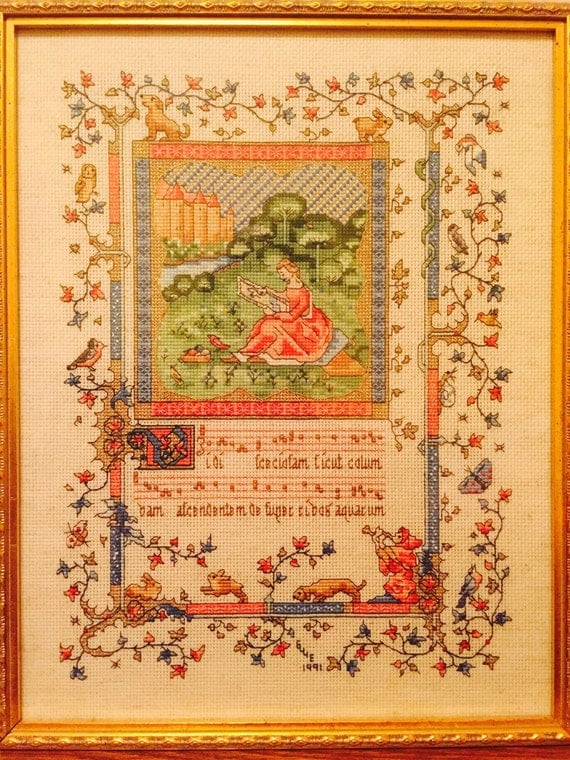 Vidi speciosam sicut colum
bam ascendentem desuper rivos aquarum
1991